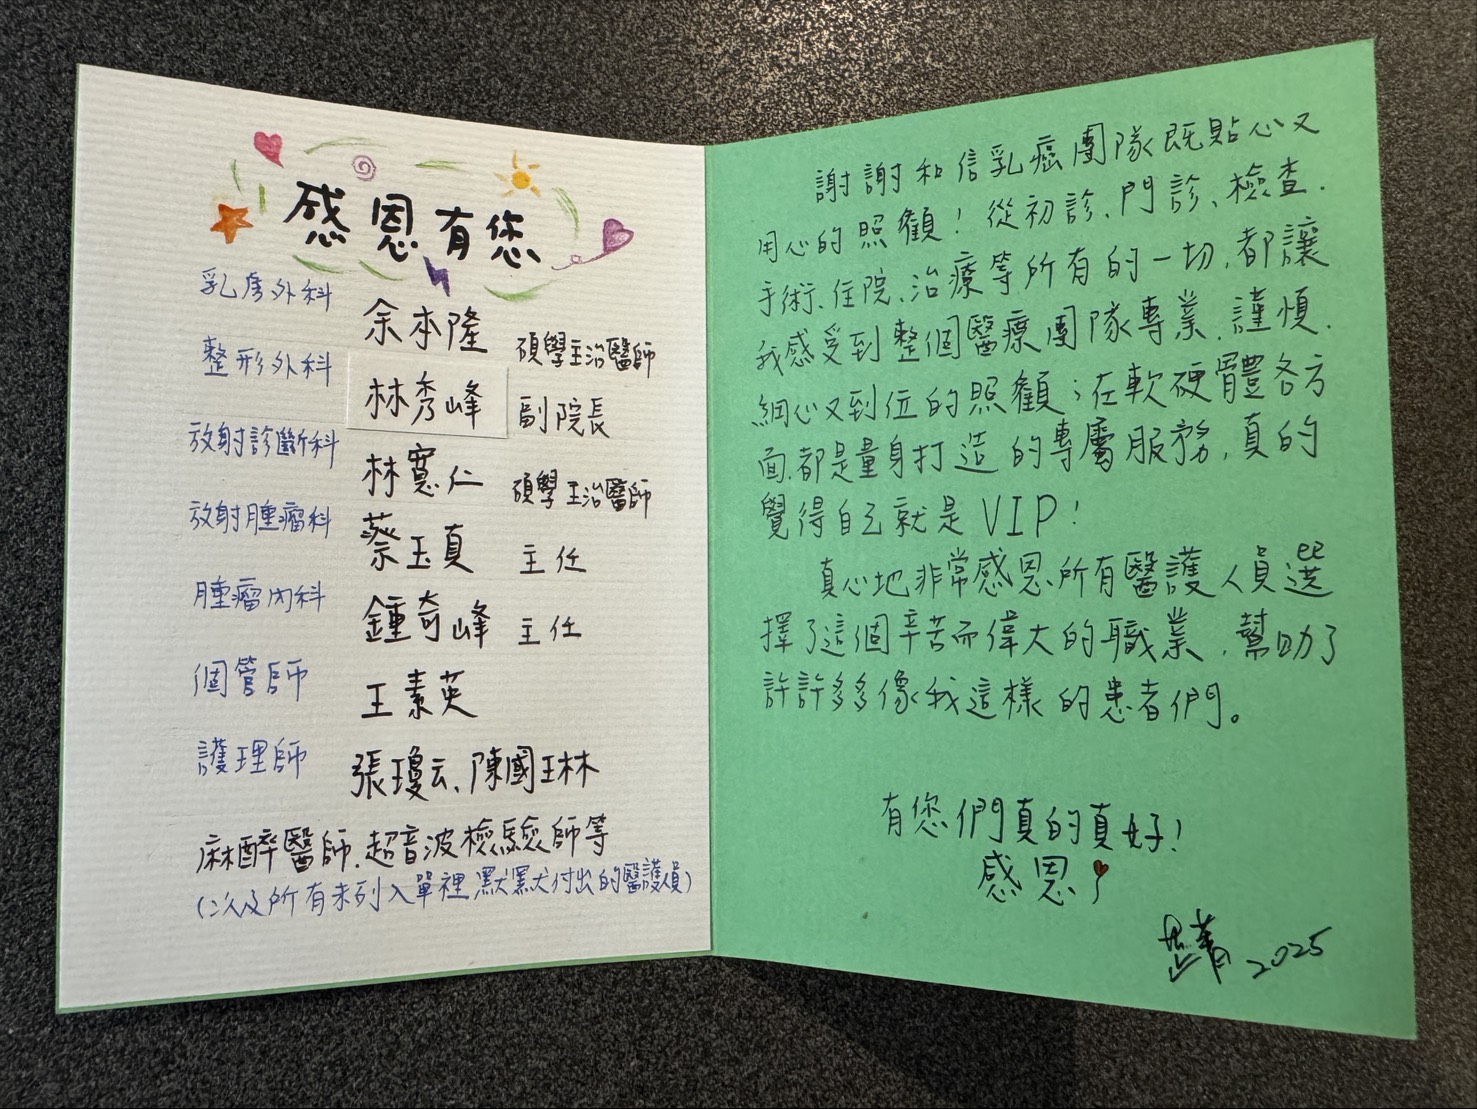 感恩有您
乳房外科 余本隆 碩學主治醫師
整形外科 林秀峰 副院長
放射診斷科 林寬仁 碩學主治醫師
放射腫瘤科 蔡玉真 主任
腫瘤內科 鍾奇峰 主任
個管師 王素英
護理師 張瓊云、陳國琳
麻醉醫師、超音波檢驗師等
(以及所有未列入單裡默默付出的醫護人員)
謝謝和信乳癌團隊既貼心又
用心的照顧！從初診、門診、檢查、
手術、住院、治療等所有的一切，都讓
我感受到整個醫療團隊專業、謹慎、
細心又到位的照顧；在軟硬體各方
面，都是量身打造的專屬服務，真的
覺得自己就是VIP！
真心地非常感恩所有醫護人員選
擇了這個辛苦而偉大的職業，幫助了
許許多多像我這樣的患者們。
有您們真的真好！
感恩
2025